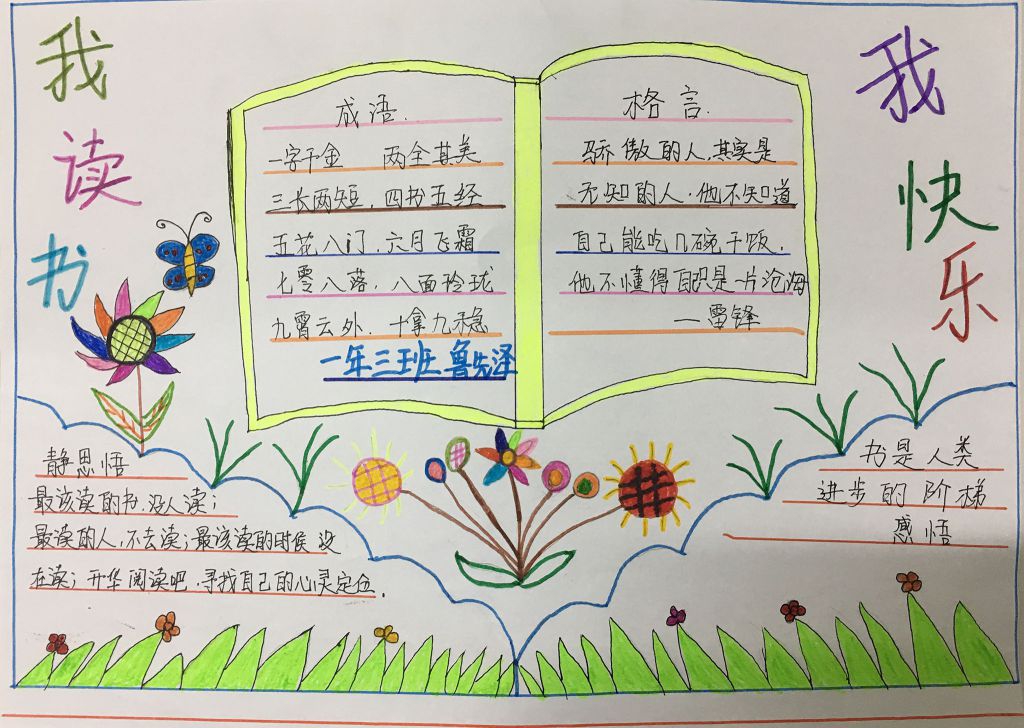 我读书
我快乐
成语.
一字千金 两全其美
三长两短,四书五经
五花八门.六月飞霜
七零八落,八面玲珑
九霄云外.十拿九稳
一年三班 鲁先泽
格言.
骄傲的人,其实是
无知的人.他不知道
自己能吃几碗干饭.
他不懂得自己只是一片沧海
—雷锋
静思悟
最该读的书.没人读;
最读的人,不去读;最该读的时侯没
在读;升华阅读吧.寻找自己的心灵定位.
书是人类
进步的阶梯
感悟